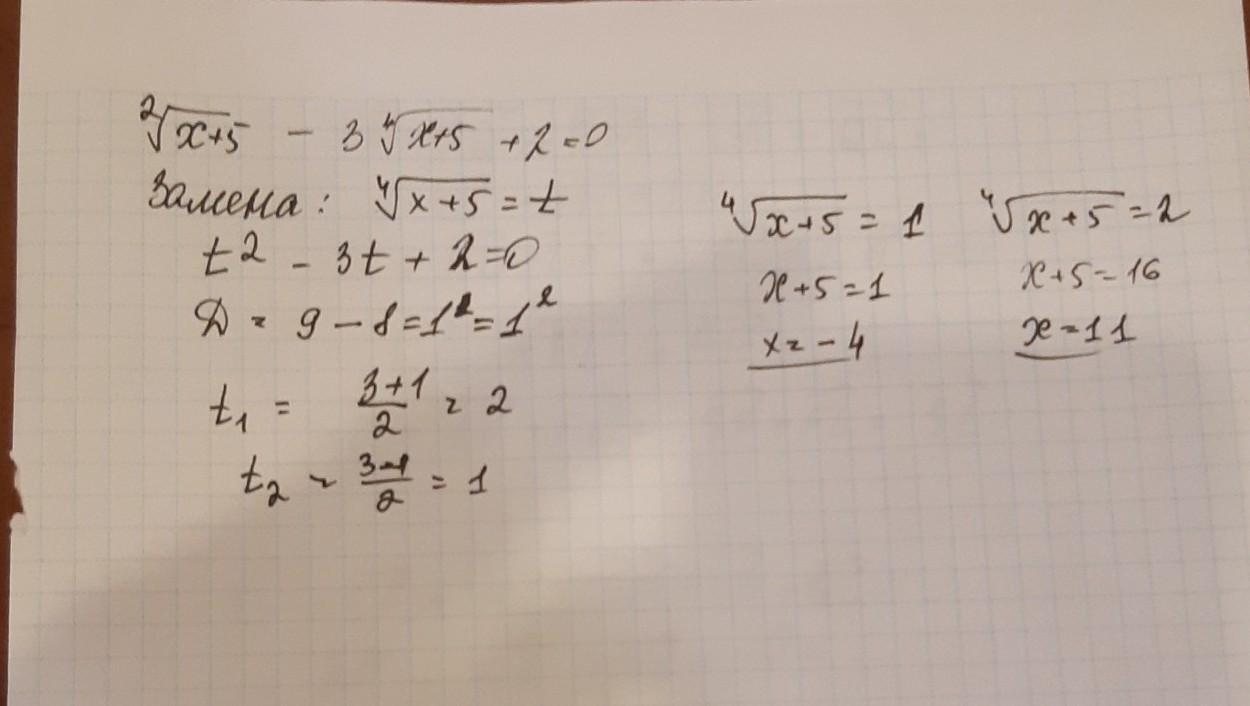 ²√(x+5) − 3 ⁴√(x+5) + 2 = 0
Замена: ⁴√(x+5) = t
t² − 3t + 2 = 0
D = 9 − 8 = 1² = 1²
t₁ = (3+1)/2 = 2
t₂ = (3−1)/2 = 1
⁴√(x+5) = 1
x+5 = 1
x = −4
⁴√(x+5) = 2
x+5 = 16
x = 11